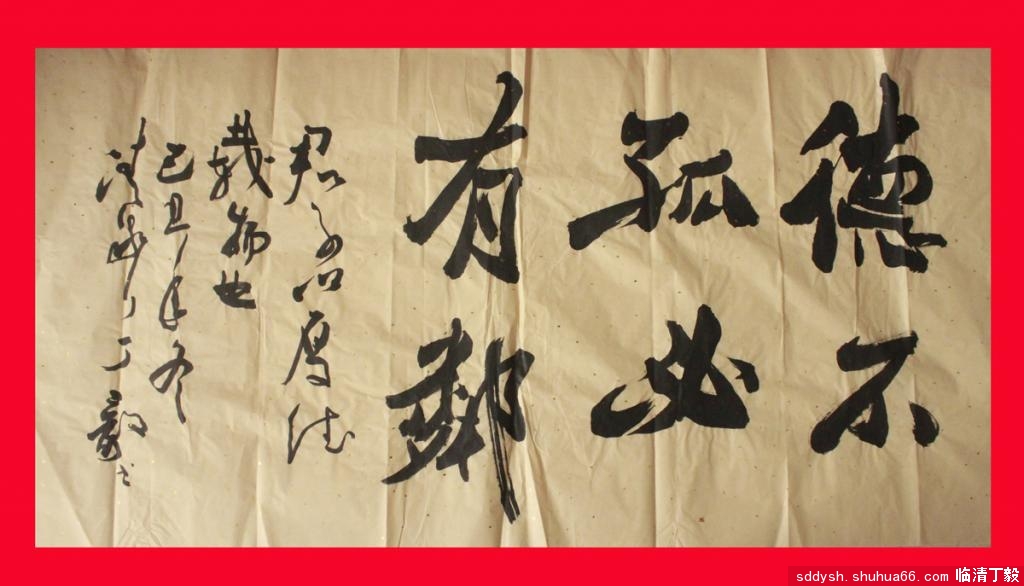 德不
孤必
有鄰
君子以厚德
載物也
己丑年冬
丁毅书
sddysh.shuhua66.com 临清丁毅